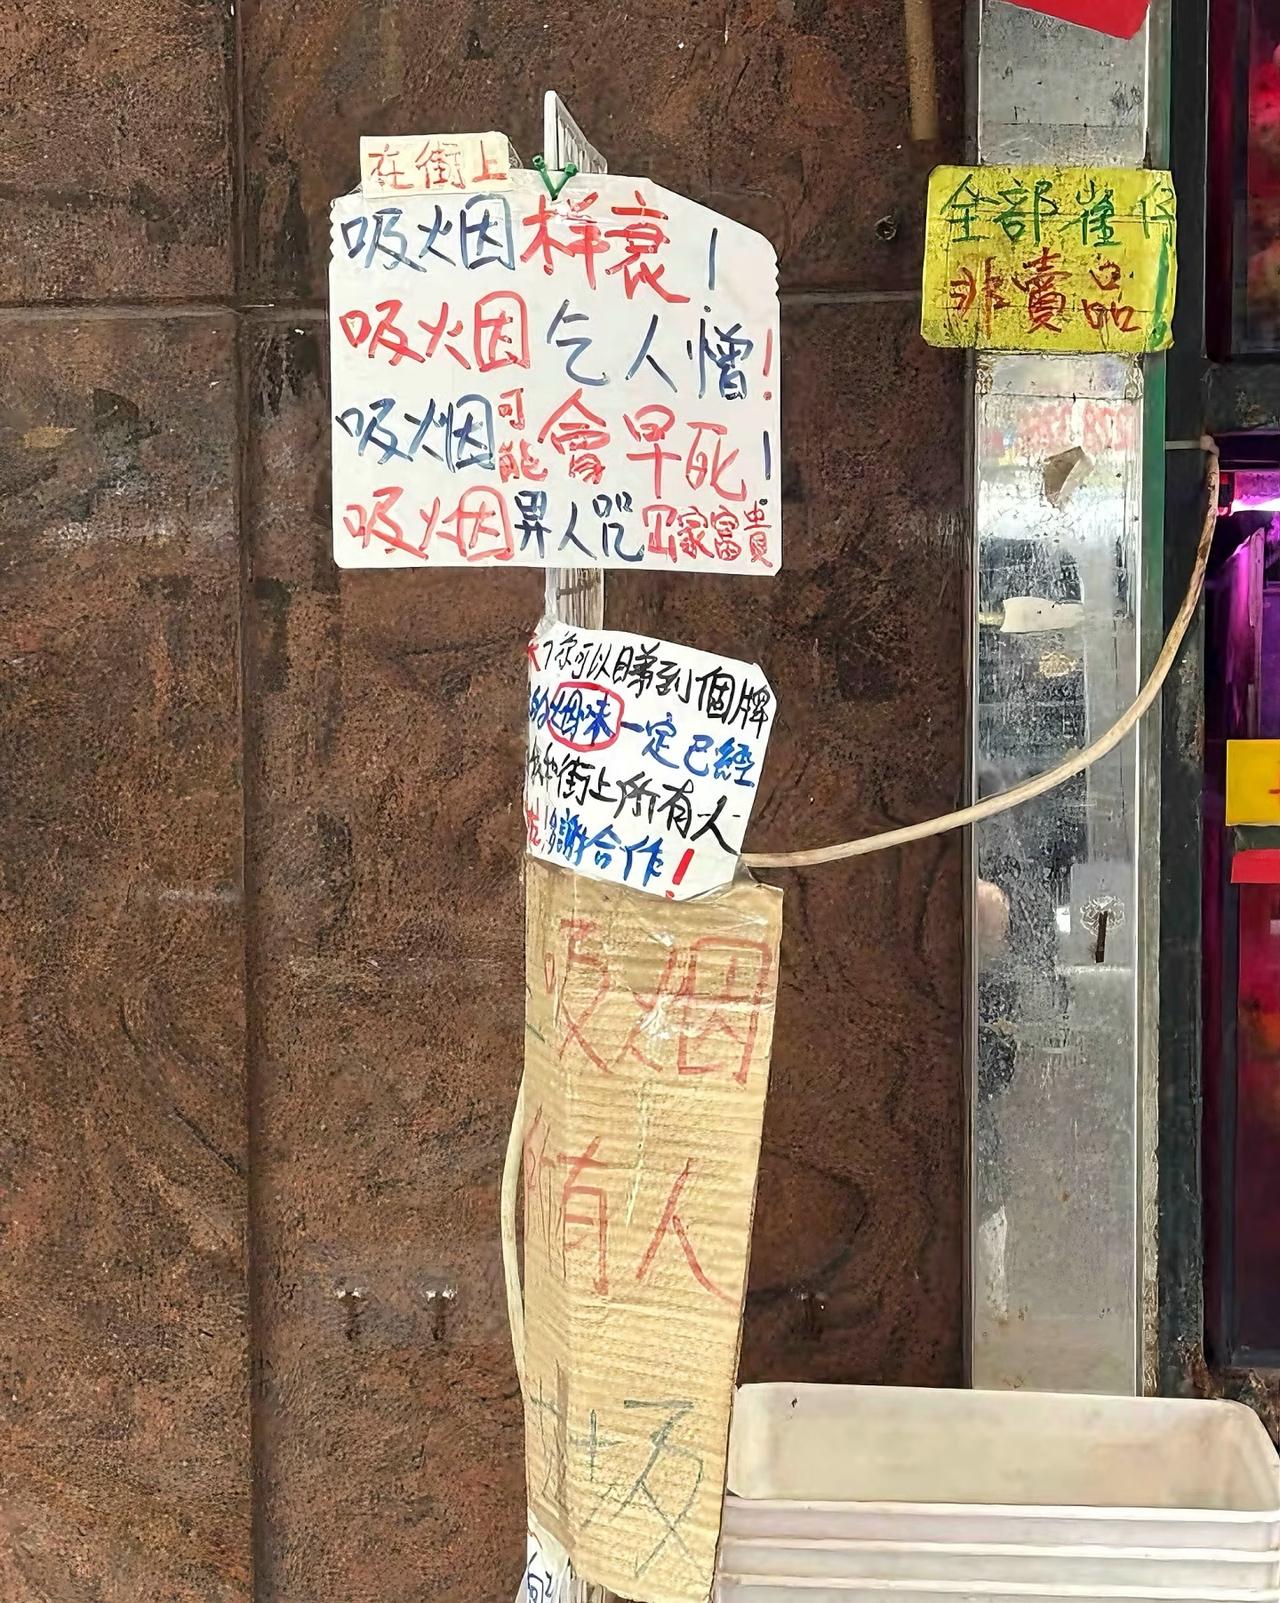 在街上
吸烟样衰!
吸烟乞人憎!
吸烟可能會早死!
吸烟畀人咒冚家富貴
你可以睇到個牌
的烟味一定已經
街上所有人
多謝合作!
吸烟
所有人
全部雀仔
非賣品